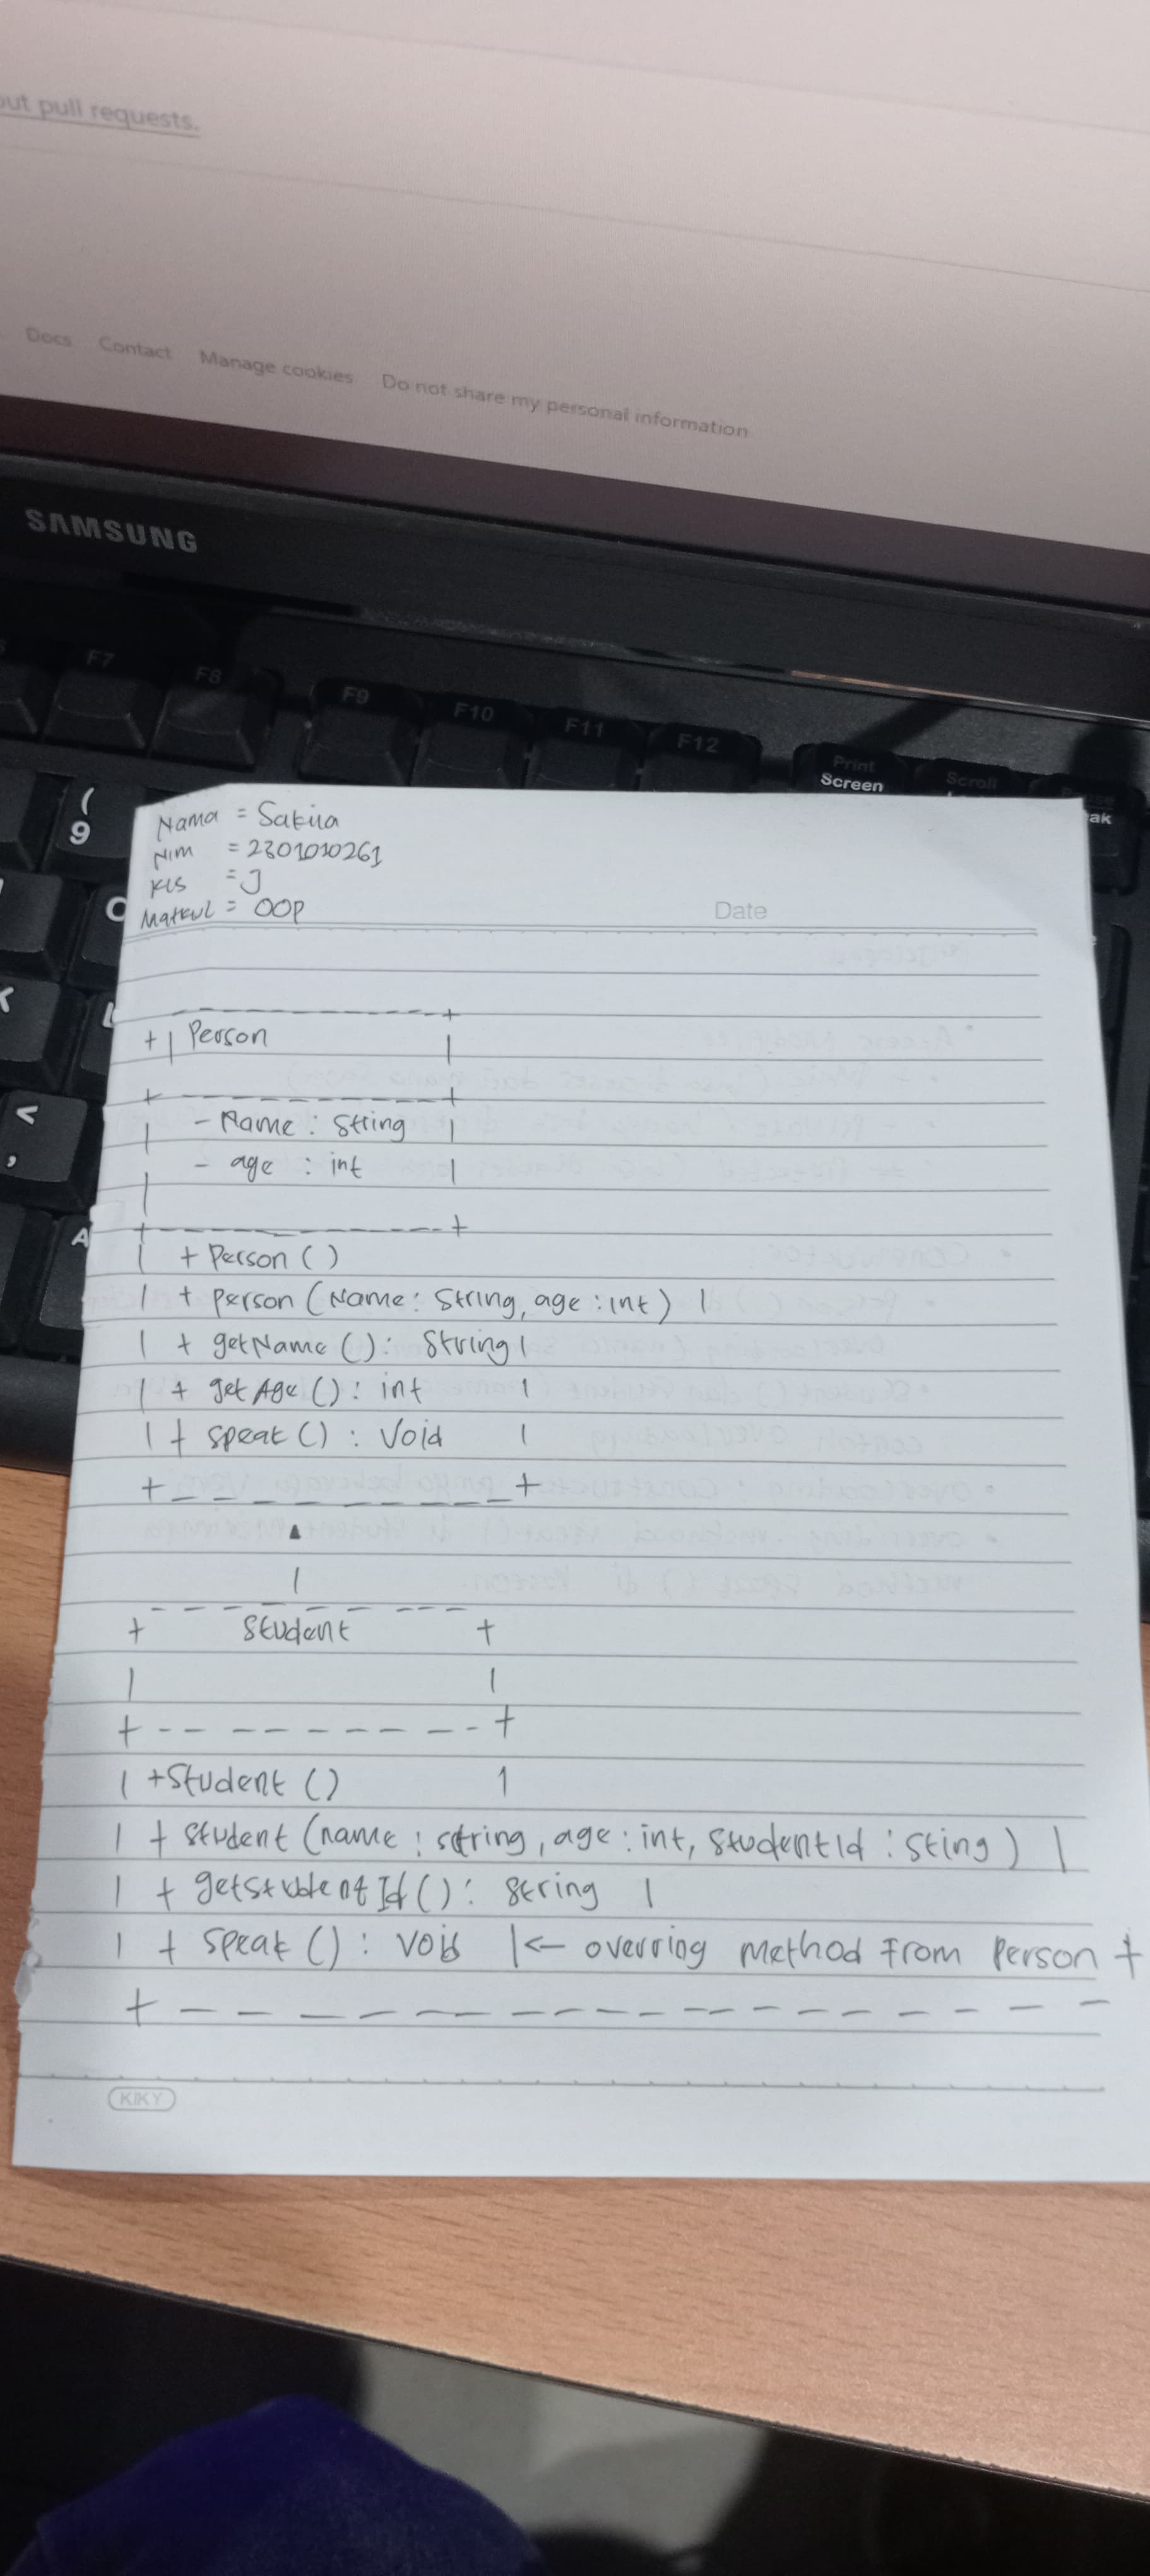 out pull requests.
Docs Contact Manage cookies Do not share my personal information
SAMSUNG
F7 F8 F9 F10 F11 F12 Print Screen Scroll
( 9
< ,
A
Nama = Sakiia
Nim = 2301010261
Kls = J
Matkul = OOP
Date
+ - - - - - - - - +
+| Person |
+ - - - - - - - - +
| - Name : String |
| - age : int |
|
+ - - - - - - - - +
| + Person ()
| + person (Name : String, age : int) |
| + getName () : String |
| + getAge () : int |
| + speak () : Void |
+ _ _ _ _ _ _ _ _ _ +
▲
|
- - - - - - - - -
+ Student +
| |
+ - - - - - - - - +
| + Student () |
| + Student (name : string, age : int, StudentId : Sting) |
| + getStudentId () : String |
| + speak () : void |<- overring method From Person +
+ - - - - - - - - - - - - - - - - -
KIKY